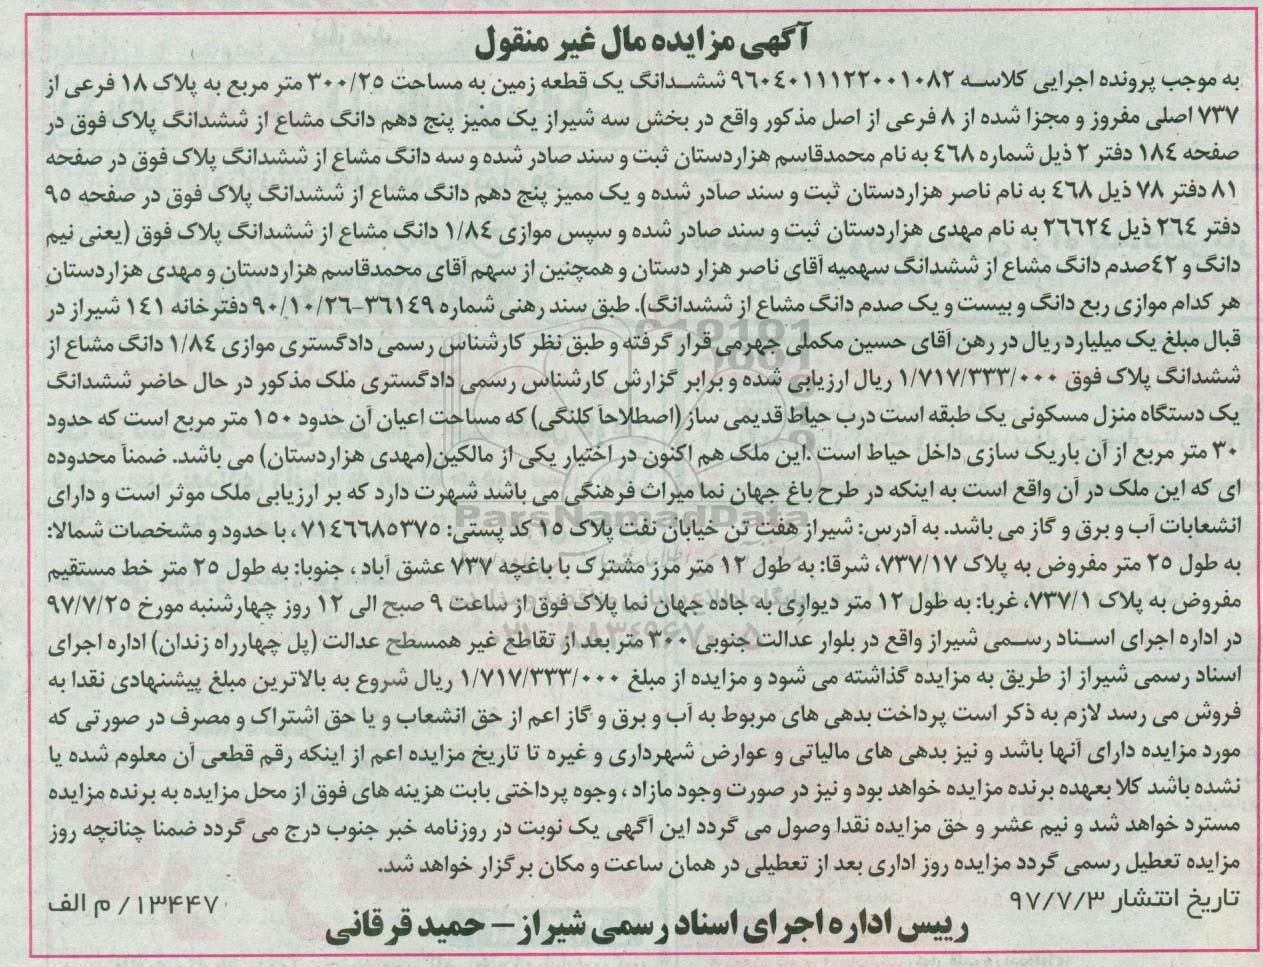 آگهی مزایده مال غیر منقول
به موجب پرونده اجرایی کلاسه ۹۶۰۴۰۱۱۱۲۲۰۰۱۰۸۲ ششدانگ یک قطعه زمین به مساحت ۳۰۰/۲۵ متر مربع به پلاک ۱۸ فرعی از
۷۳۷ اصلی مفروز و مجزا شده از ۸ فرعی از اصل مذکور واقع در بخش سه شیراز یک ممیز پنج دهم دانگ مشاع از ششدانگ پلاک فوق در
صفحه ۱۸۴ دفتر ۲ ذیل شماره ۴۶۸ به نام محمدقاسم هزاردستان ثبت و سند صادر شده و سه دانگ مشاع از ششدانگ پلاک فوق در صفحه
۸۱ دفتر ۷۸ ذیل ۴۶۸ به نام ناصر هزاردستان ثبت و سند صادر شده و یک ممیز پنج دهم دانگ مشاع از ششدانگ پلاک فوق در صفحه ۹۵
دفتر ۲۶۴ ذیل ۲۶۶۲۴ به نام مهدی هزاردستان ثبت و سند صادر شده و سپس موازی ۱/۸۴ دانگ مشاع از ششدانگ پلاک فوق (یعنی نیم
دانگ و ۴۲صدم دانگ مشاع از ششدانگ سهمیه آقای ناصر هزار دستان و همچنین از سهم آقای محمدقاسم هزاردستان و مهدی هزاردستان
هر کدام موازی ربع دانگ و بیست و یک صدم دانگ مشاع از ششدانگ). طبق سند رهنی شماره ۳۶۱۴۹-۹۰/۱۰/۲۶ دفترخانه ۱۴۱ شیراز در
قبال مبلغ یک میلیارد ریال در رهن آقای حسین مکملی جهرمی قرار گرفته و طبق نظر کارشناس رسمی دادگستری موازی ۱/۸۴ دانگ مشاع از
ششدانگ پلاک فوق ۱/۷۱۷/۳۳۳/۰۰۰ ریال ارزیابی شده و برابر گزارش کارشناس رسمی دادگستری ملک مذکور در حال حاضر ششدانگ
یک دستگاه منزل مسکونی یک طبقه است درب حیاط قدیمی ساز (اصطلاحاً کلنگی) که مساحت اعیان آن حدود ۱۵۰ متر مربع است که حدود
۳۰ متر مربع از آن باریک سازی داخل حیاط است .این ملک هم اکنون در اختیار یکی از مالکین(مهدی هزاردستان) می باشد. ضمناً محدوده
ای که این ملک در آن واقع است به اینکه در طرح باغ جهان نما میراث فرهنگی می باشد شهرت دارد که بر ارزیابی ملک موثر است و دارای
انشعابات آب و برق و گاز می باشد. به آدرس: شیراز هفت تن خیابان نفت پلاک ۱۵ کد پستی: ۷۱۴۶۶۸۵۳۷۵ ، با حدود و مشخصات شمالا:
به طول ۲۵ متر مفروض به پلاک ۷۳۷/۱۷، شرقا: به طول ۱۲ متر مرز مشترک با باغچه ۷۳۷ عشق آباد ، جنوبا: به طول ۲۵ متر خط مستقیم
مفروض به پلاک ۷۳۷/۱، غربا: به طول ۱۲ متر دیواری به جاده جهان نما پلاک فوق از ساعت ۹ صبح الی ۱۲ روز چهارشنبه مورخ ۹۷/۷/۲۵
در اداره اجرای اسناد رسمی شیراز واقع در بلوار عدالت جنوبی ۳۰۰ متر بعد از تقاطع غیر همسطح عدالت (پل چهارراه زندان) اداره اجرای
اسناد رسمی شیراز از طریق به مزایده گذاشته می شود و مزایده از مبلغ ۱/۷۱۷/۳۳۳/۰۰۰ ریال شروع به بالاترین مبلغ پیشنهادی نقدا به
فروش می رسد لازم به ذکر است پرداخت بدهی های مربوط به آب و برق و گاز اعم از حق انشعاب و یا حق اشتراک و مصرف در صورتی که
مورد مزایده دارای آنها باشد و نیز بدهی های مالیاتی و عوارض شهرداری و غیره تا تاریخ مزایده اعم از اینکه رقم قطعی آن معلوم شده یا
نشده باشد کلا بعهده برنده مزایده خواهد بود و نیز در صورت وجود مازاد ، وجوه پرداختی بابت هزینه های فوق از محل مزایده به برنده مزایده
مسترد خواهد شد و نیم عشر و حق مزایده نقدا وصول می گردد این آگهی یک نوبت در روزنامه خبر جنوب درج می گردد ضمنا چنانچه روز
مزایده تعطیل رسمی گردد مزایده روز اداری بعد از تعطیلی در همان ساعت و مکان برگزار خواهد شد.
تاریخ انتشار ۹۷/۷/۳
۱۳۴۴۷/ م الف
رییس اداره اجرای اسناد رسمی شیراز – حمید قرقانی
ParsNamadData